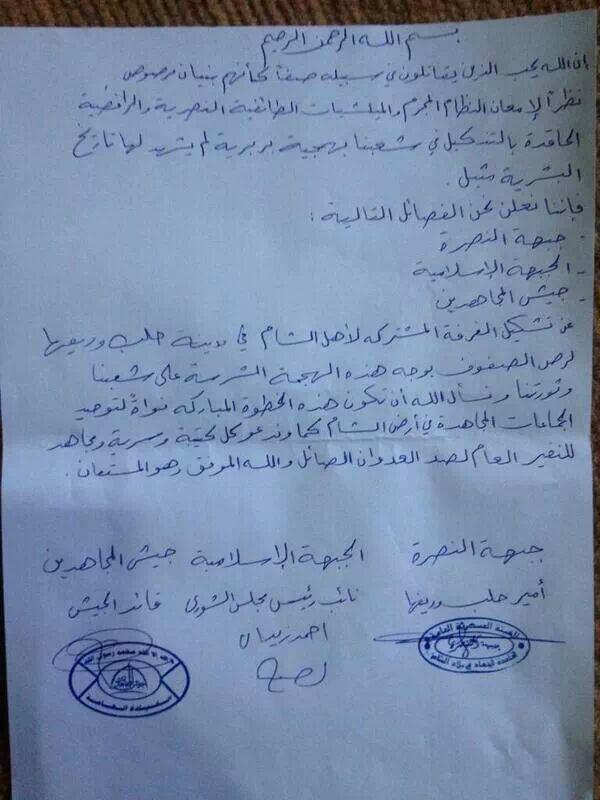 بسم الله الرحمن الرحيم
إن الله يحب الذين يقاتلون في سبيله صفاً كأنهم بنيان مرصوص
نظراً لإمعان النظام المجرم والميلشيات الطائفية النصيرية والرافضية
الحاقدة بالتنكيل في شعبنا بهمجية بربرية لم يشهد لها تاريخ
البشرية مثيل .
فإننا نعلن نحن الفصائل التالية :
- جبهة النصرة
- الجبهة الإسلامية
- جيش المجاهدين
عن تشكيل الغرفة المشتركه لأهل الشام في مدينة حلب وريفها
لرص الصفوف بوجه هذه الهجمة الشرسة على شعبنا
وثورتنا ونسأل الله أن تكون هذه الخطوة المباركه نواةً لتوحيد
الجماعات المجاهدة في أرض الشام كما وندعو كل كتيبة وسرية ومجاهد
للنفير العام لصد العدوان الصائل والله الموفق وهو المستعان .
جبهة النصرة الجبهة الإسلامية جيش المجاهدين
أمير حلب وريفها نائب رئيس مجلس الشورى قائد الجيش
احمد زيدان
جبهة النصرة
القيادة العامة